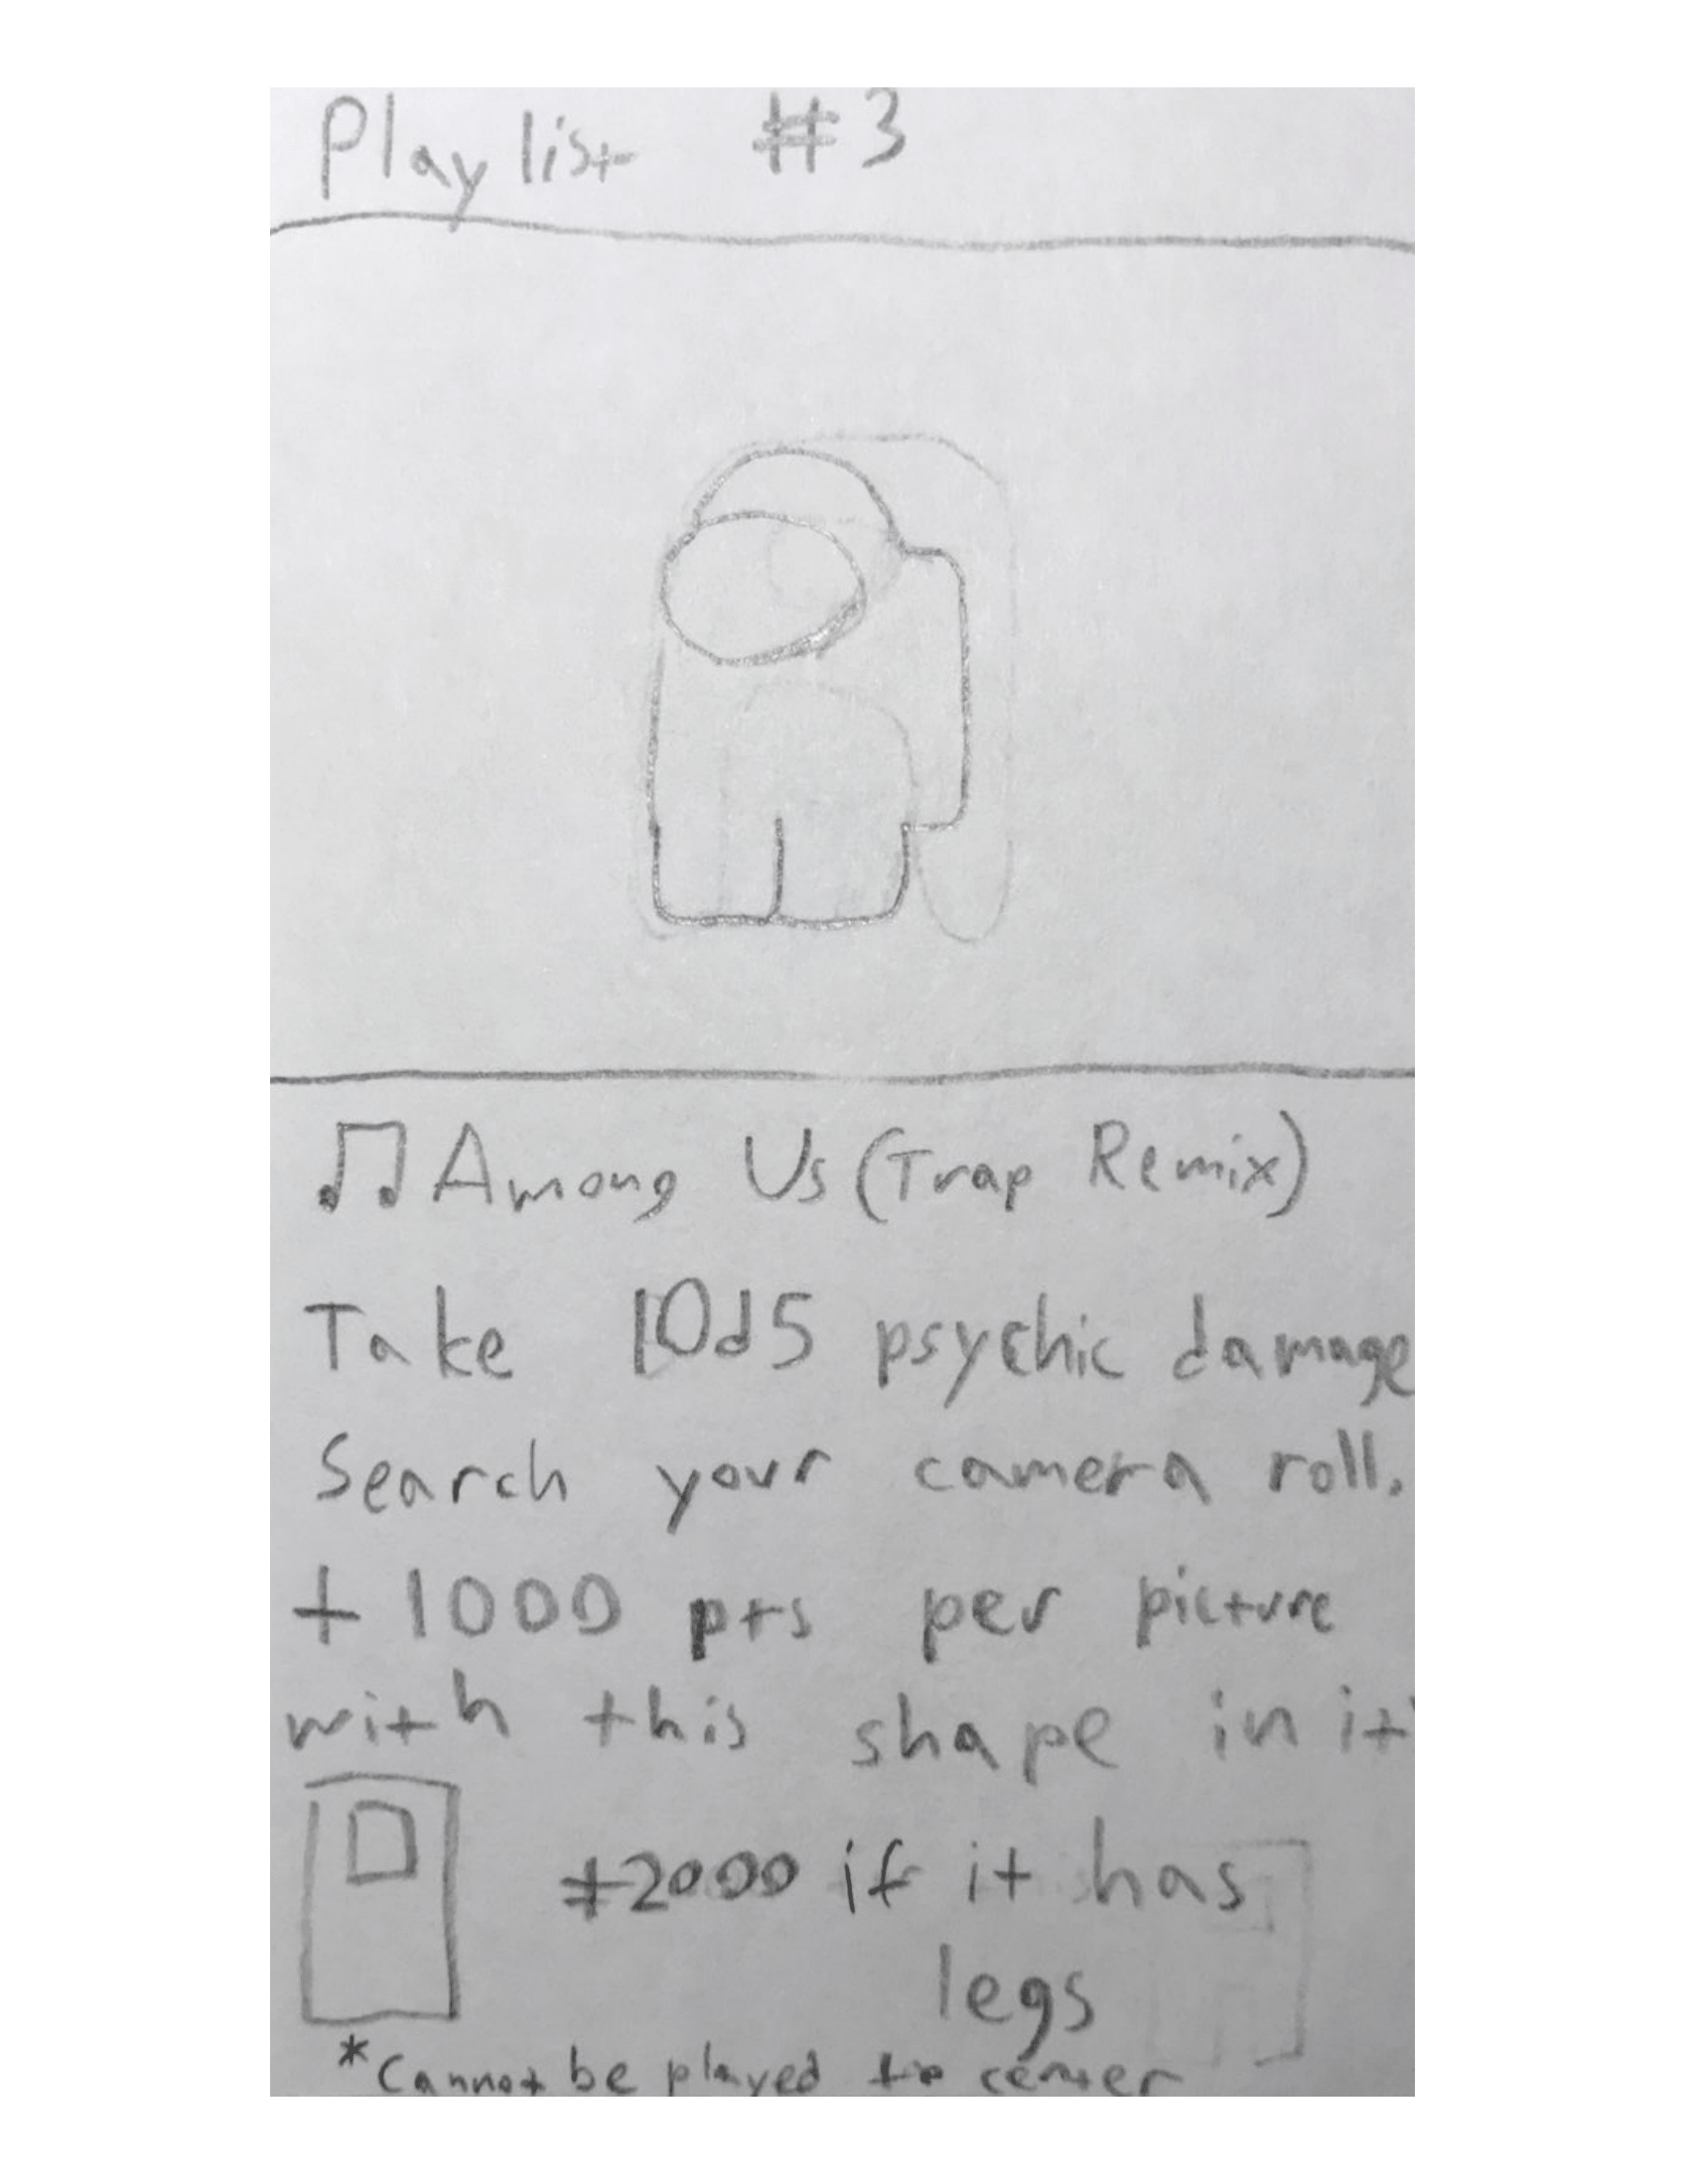 Playlist #3
♫ Among Us (Trap Remix)
Take 10d5 psychic damage
Search your camera roll.
+1000 pts per picture
with this shape in it
+2000 if it has
legs
*Cannot be played to center